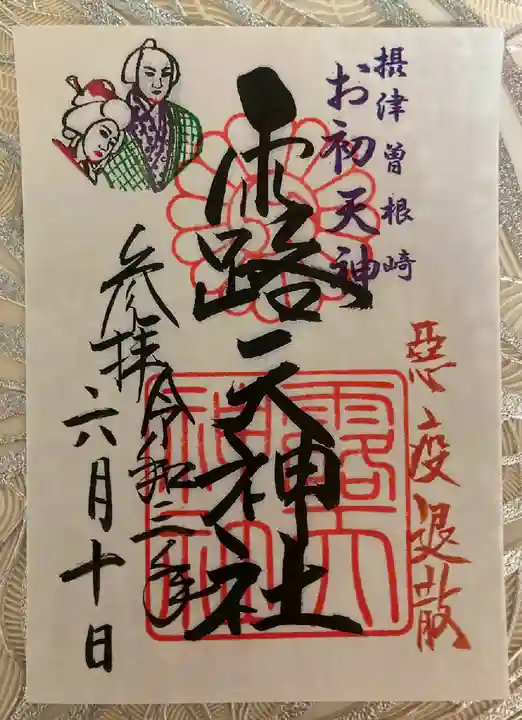 摂津曽根崎
お初天神
惡疫退散
露天神社
参拝令和二年
六月十日
露天
神社